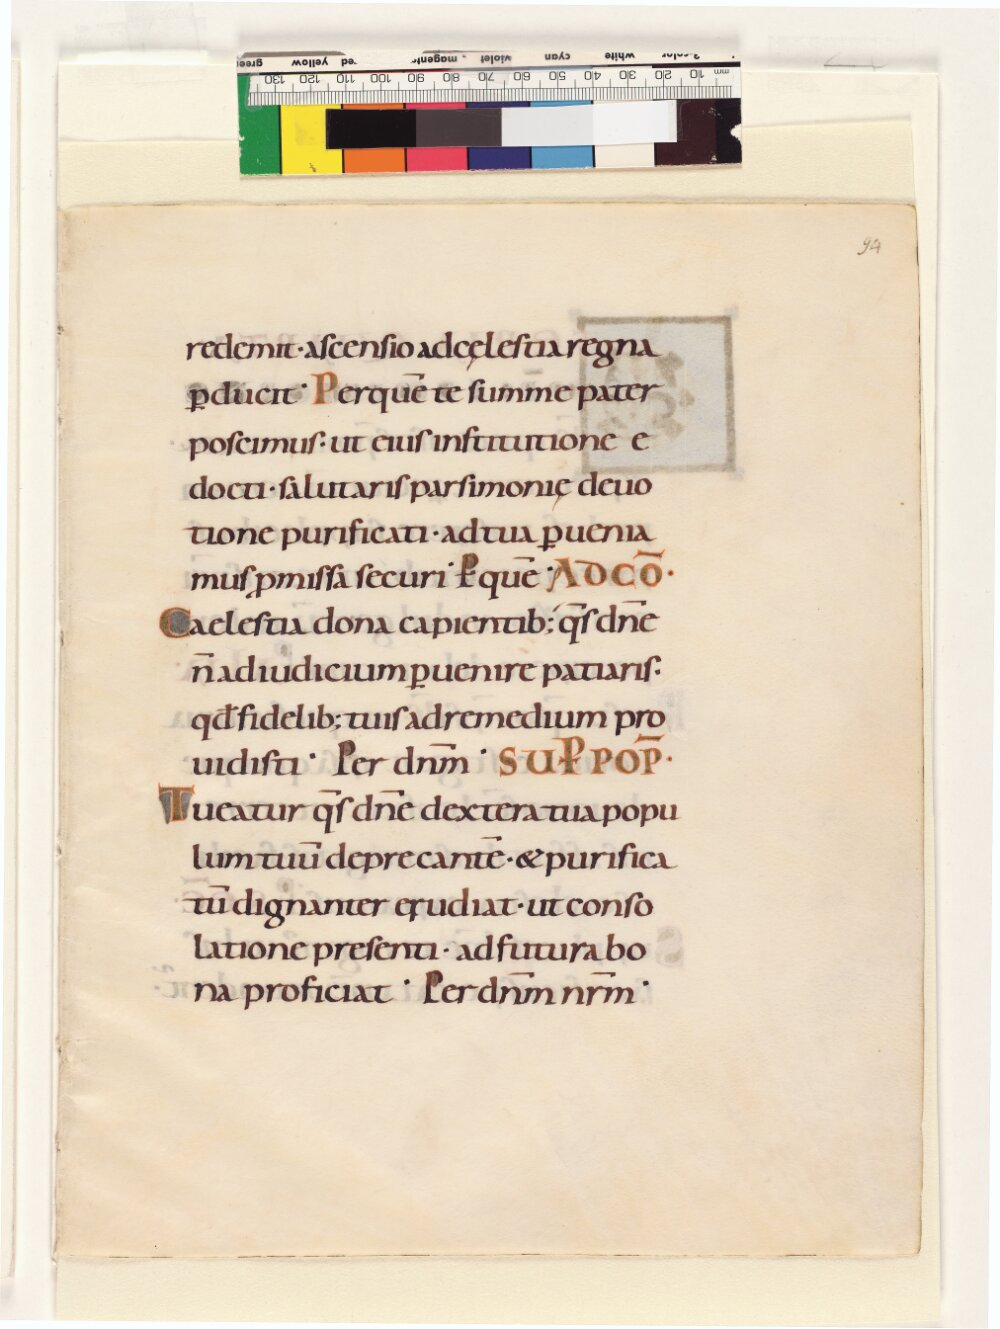 green yellow red magenta violet cyan white 3-color
130 120 110 100 90 80 70 60 50 40 30 20 10 mm
94
redemit·ascensio adcęlestia regna
ꝑducit· Perquē te summe pater
poscimus: ut eius institutione e
docti·salutaris parsimonię deuo
tione purificati·adtua ꝑuenia
mus ꝓmissa securi· P̱ quē· AD CŌ·
Caelestia dona capientib; q̄s dn̄e
n̄ adiudicium ꝑuenire patiaris·
qđ fidelib; tuis adremedium pro
uidisti· Per dnm̄· SUꝐ POP̄·
Tueatur q̄s dn̄e dextera tua popu
lum tuū deprecantē·& purifica
tū dignanter erudiat·ut conso
latione presenti· ad futura bo
na proficiat· Per dnm̄ nrm̄·